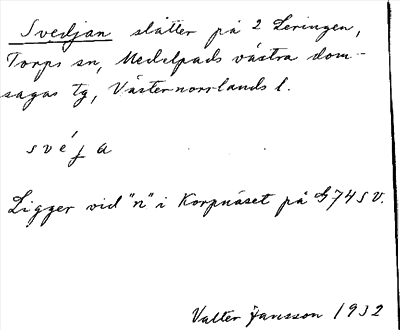 Svedjan slåtter på 2 Leringen,
Torps sn, Medelpads västra dom-
sagas tg, Västernorrlands l.
svéja
Ligger vid "n" i Korpnäset på G74SV.
Valter Jansson 1932